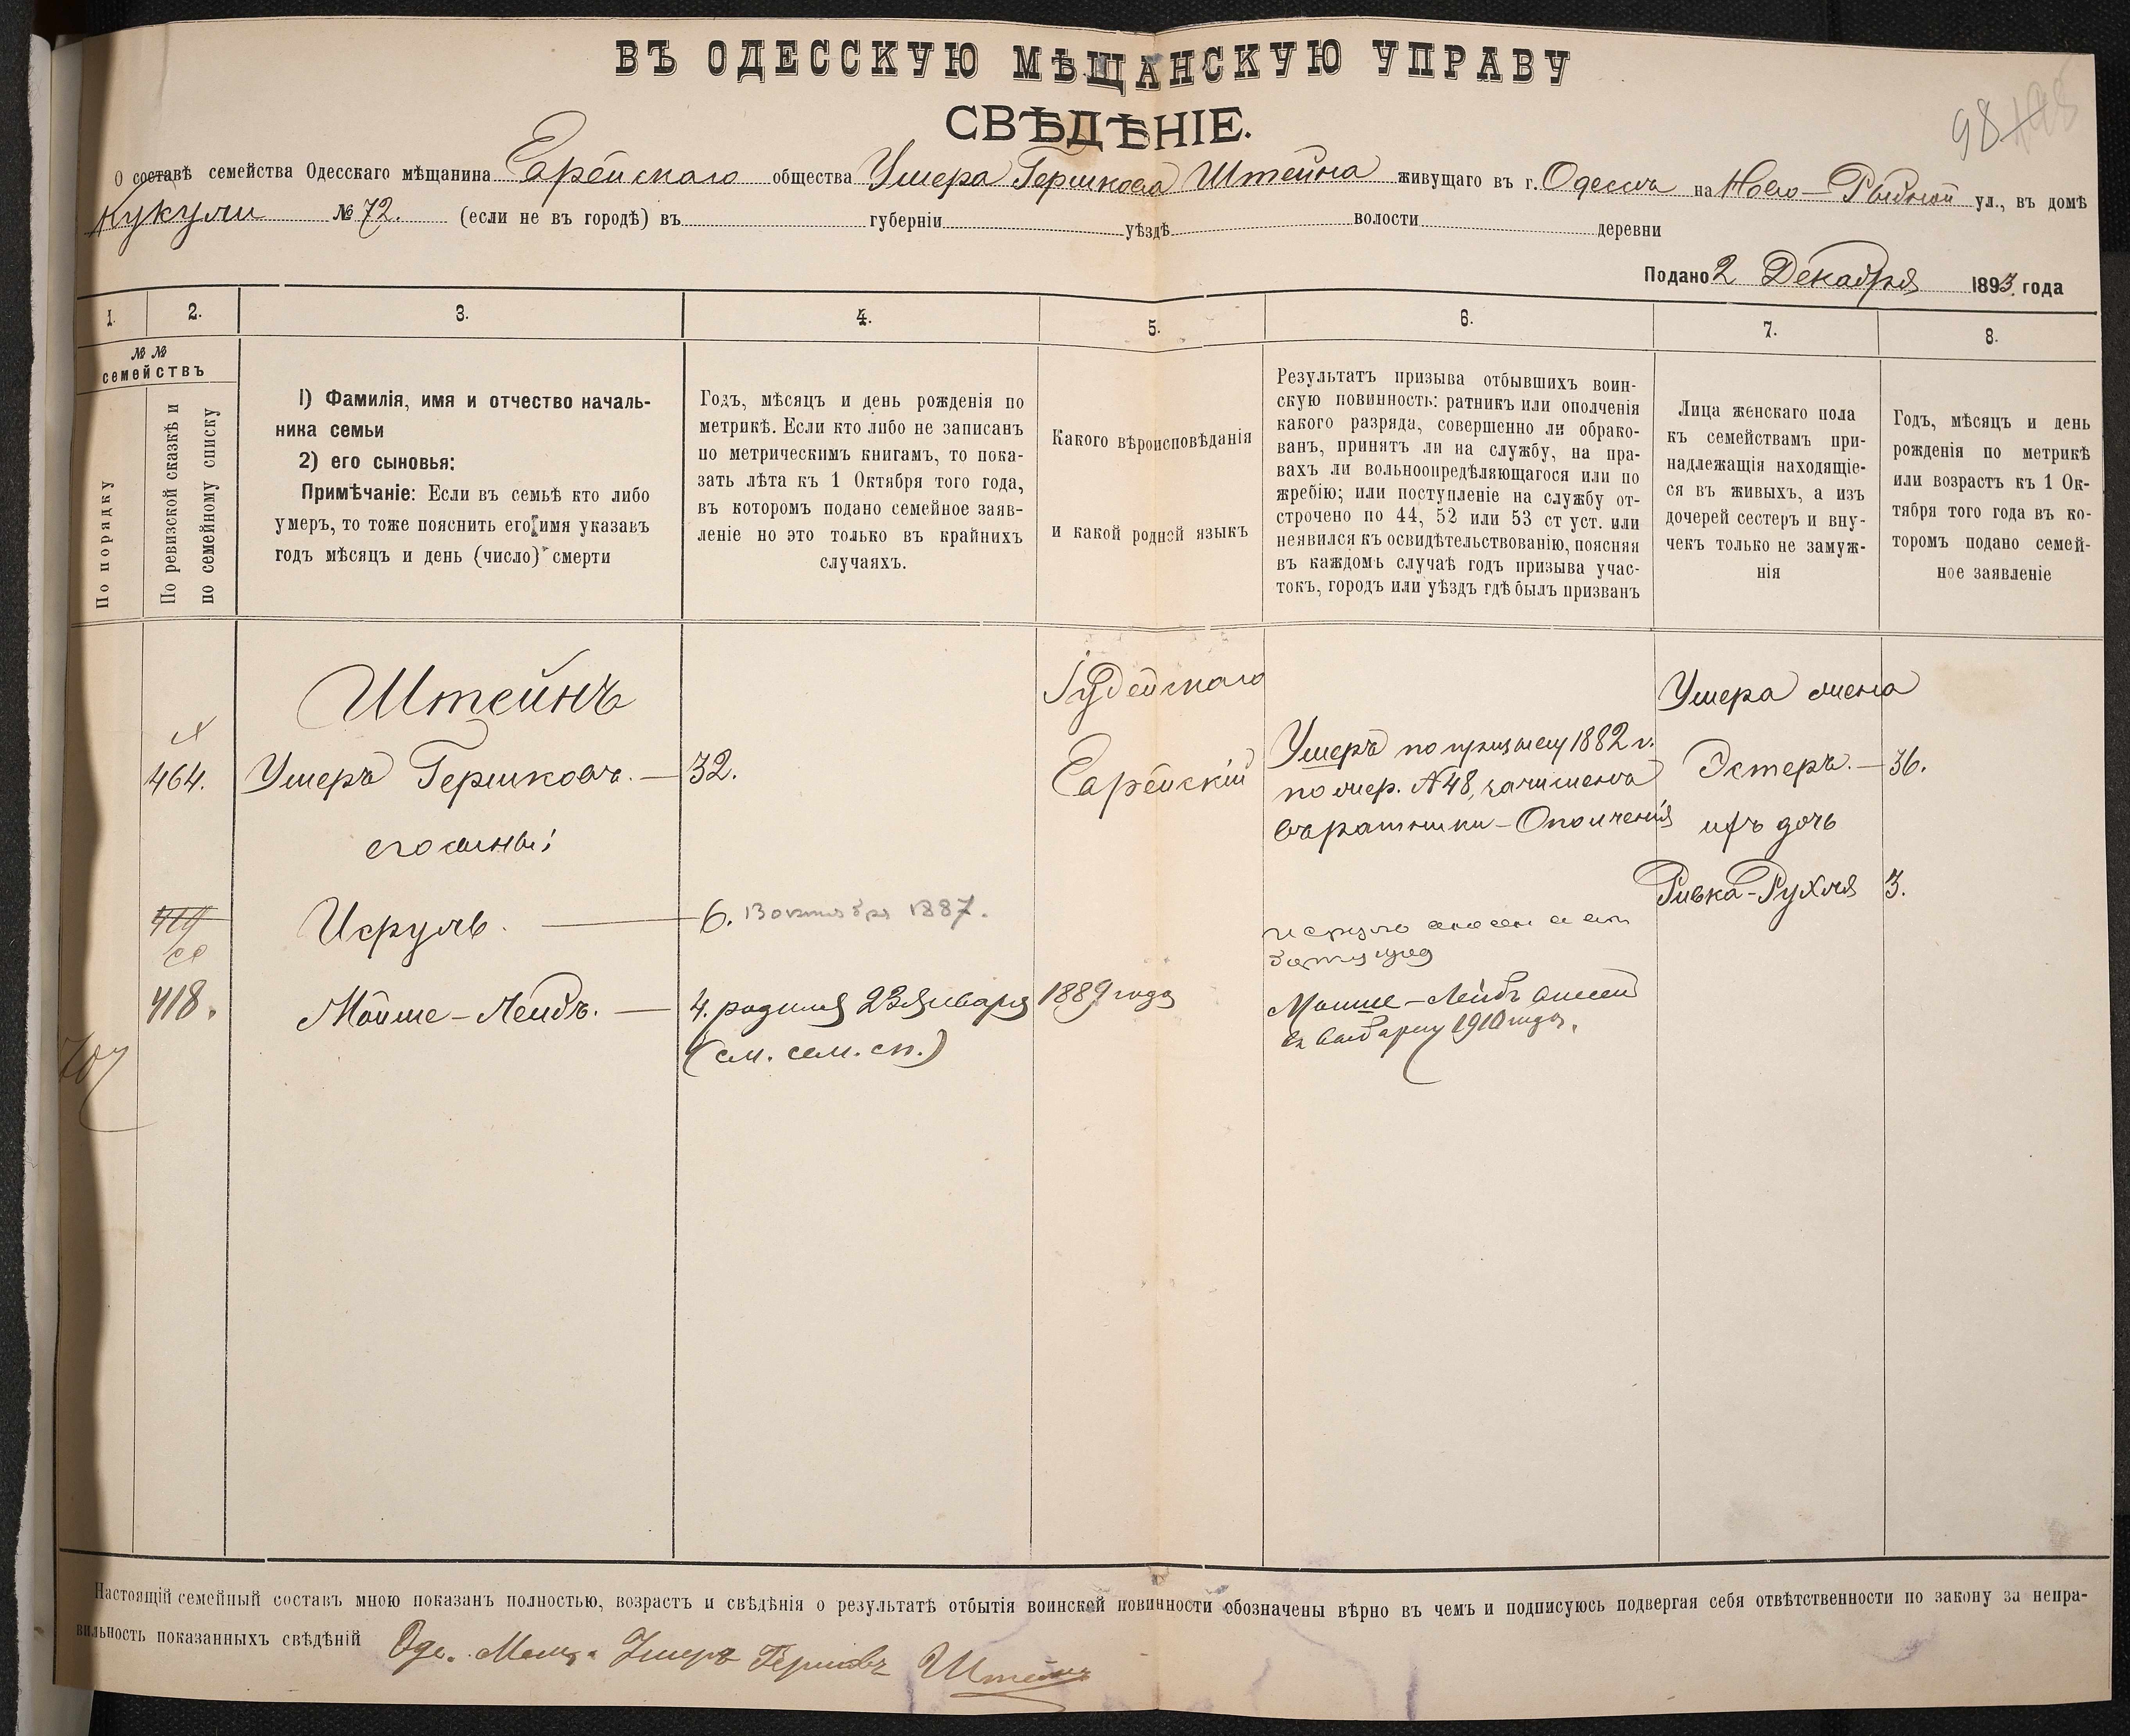 98
ВЪ ОДЕССКУЮ МѢЩАНСКУЮ УПРАВУ
СВѢДѢНІЕ.
О составѣ семейства Одесскаго мѣщанина Еврейскаго общества Ушера Гершкова Штейна живущаго въ г. Одессѣ на Ново-Рыбной ул., въ домѣ
Кукули № 72. (если не въ городѣ) въ губерніи уѣздѣ волости деревни
Подано 2 Декабря 1893 года
1. 2. 3. 4. 5. 6. 7. 8.
№ №
семействъ
По порядку
По ревизской сказкѣ и
по семейному списку
1) Фамилія, имя и отчество началь-
ника семьи
2) его сыновья:
Примѣчаніе: Если въ семьѣ кто либо
умеръ, то тоже пояснить его имя указавъ
годъ мѣсяцъ и день (число) смерти
Годъ, мѣсяцъ и день рожденія по
метрикѣ. Если кто либо не записанъ
по метрическимъ книгамъ, то пока-
зать лѣта къ 1 Октября того года,
въ которомъ подано семейное заяв-
леніе но это только въ крайнихъ
случаяхъ.
Какого вѣроисповѣданія
и какой родной языкъ
Результатъ призыва отбывшихъ воин-
скую повинность: ратникъ или ополченія
какого разряда, совершенно ли обрако-
ванъ, принятъ ли на службу, на пра-
вахъ ли вольноопредѣляющагося или по
жребію; или поступленіе на службу от-
строчено по 44, 52 или 53 ст уст. или
неявился къ освидѣтельствованію, поясняя
въ каждомъ случаѣ годъ призыва учас-
токъ, городъ или уѣздъ гдѣ былъ призванъ
Лица женскаго пола
къ семействамъ при-
надлежащія находящіе-
ся въ живыхъ, а изъ
дочерей сестеръ и вну-
чекъ только не замуж-
нія
Годъ, мѣсяцъ и день
рожденія по метрикѣ
или возрастъ къ 1 Ок-
тября того года въ ко-
торомъ подано семей-
ное заявленіе
Штейнъ
Іудейскаго
Ушера жена
464. Ушеръ Гершковъ. — 32.
Еврейскій
Ушеръ по призыву 1882 г.
по жер. № 48, зачисленъ
въ ратники - Ополченія
Эстеръ. — 36.
ихъ дочь
Ривка-Рухля 3.
его сыны:
Исруль. — 6. 13 октября 1887.
418. Мойше-Лейбъ. — 4. родился 23 Января 1889 года
(см. сем. сп.)
Мойше-Лейбъ внесен
1910 года.
Настоящій семейный составъ мною показанъ полностью, возрастъ и свѣдѣнія о результатѣ отбытія воинской повинности обозначены вѣрно въ чемъ и подписуюсь подвергая себя отвѣтственности по закону за непра-
вильность показанныхъ свѣдѣній Оде. Мещ. Ушеръ Гершковъ Штейнъ